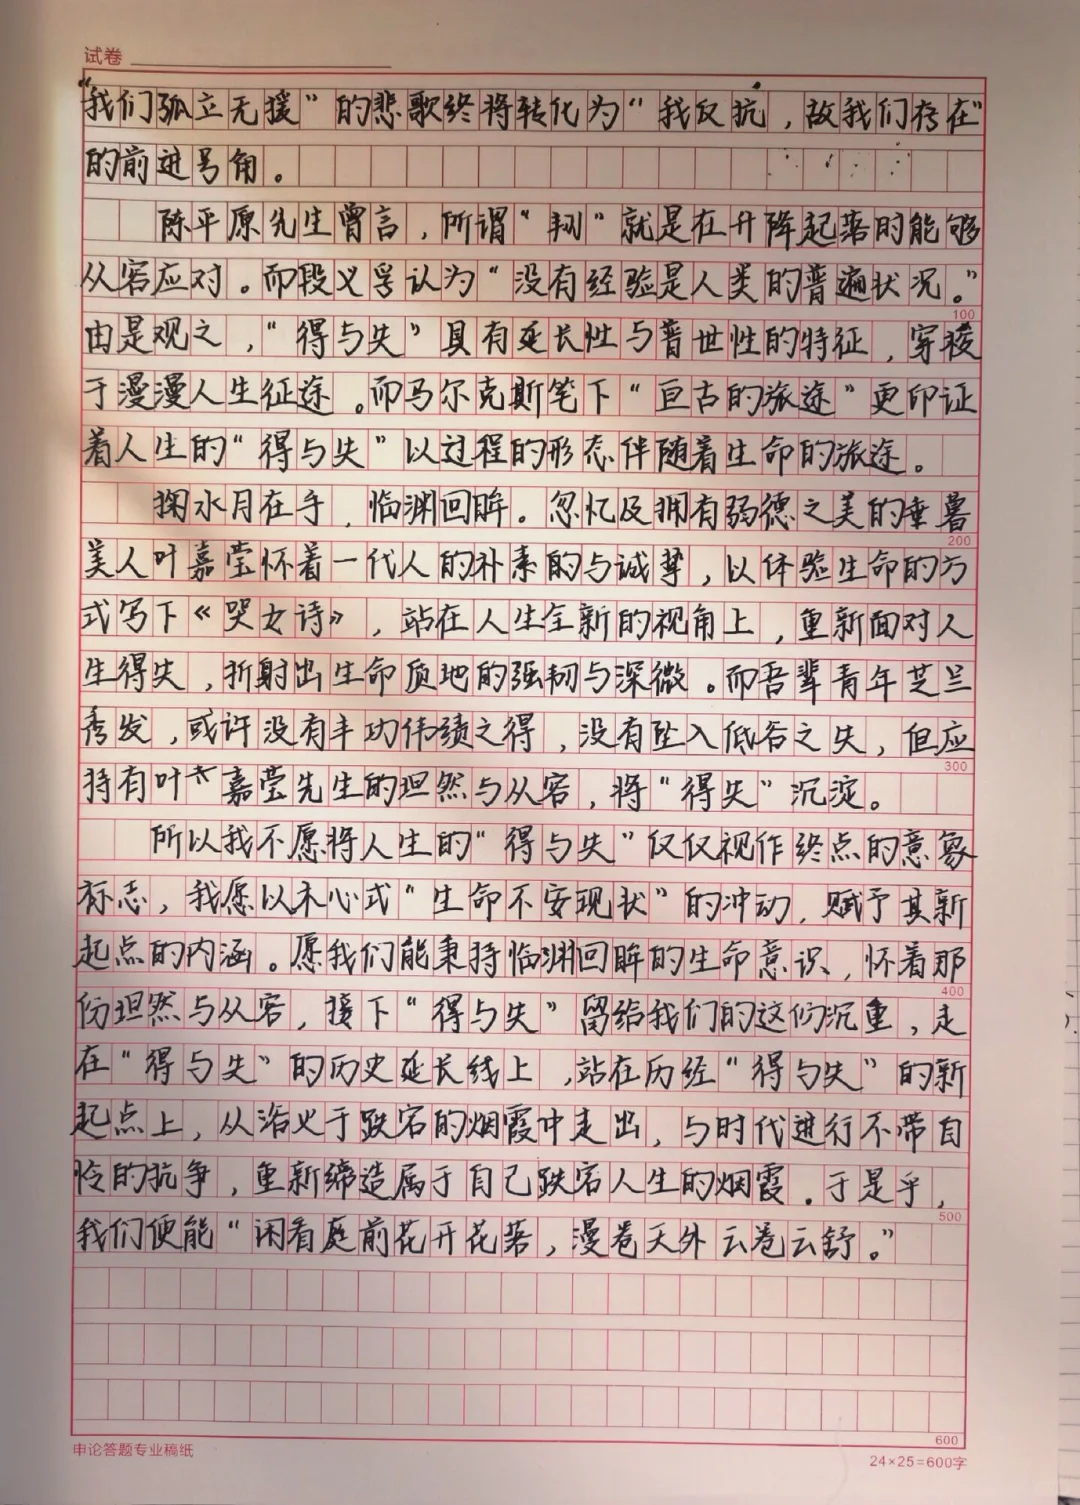 试卷
“我们孤立无援”的悲歌终将转化为“我反抗，故我们存在”
的前进号角。
陈平原先生曾言，所谓“翔”就是在升降起落时能够
从容应对。而段义孚认为“没有经验是人类的普遍状况。”
100
由是观之，“得与失”具有延长性与普世性的特征，穿梭
于漫漫人生征途。而马尔克斯笔下“亘古的旅途”更印证
着人生的“得与失”以过程的形态伴随着生命的旅途。
掬水月在手，临渊回眸。忽忆及拥有弱德之美的垂暮
200
美人叶嘉莹怀着一代人的朴素的与诚挚，以体验生命的方
式写下《哭女诗》，站在人生全新的视角上，重新面对人
生得失，折射出生命质地的强韧与深微。而吾辈青年芝兰
秀发，或许没有丰功伟绩之得，没有坠入低谷之失，但应
300
持有叶嘉莹先生的坦然与从容，将“得失”沉淀。
所以我不愿将人生的“得与失”仅仅视作终点的意象
标志，我愿以木心式“生命不安现状”的冲动，赋予其新
起点的内涵。愿我们能秉持临渊回眸的生命意识，怀着那
400
份坦然与从容，接下“得与失”留给我们的这份沉重，走
在“得与失”的历史延长线上，站在历经“得与失”的新
起点上，从浴火于跌宕的烟霞中走出，与时代进行不带自
怜的抗争，重新缔造属于自己跌宕人生的烟霞。于是乎，
500
我们便能“闲看庭前花开花落，漫卷天外云卷云舒。”
600
申论答题专业稿纸
24×25=600字